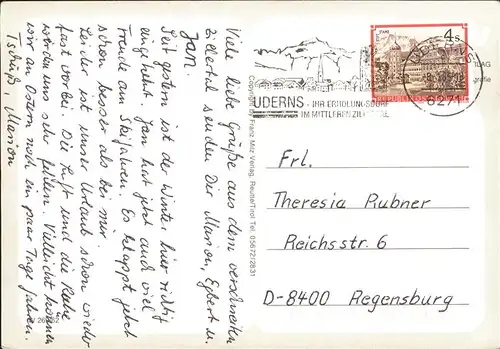 Viele liebe Grüße aus dem verschneiten
Zillertal senden Dir Marion, Egbert u.
Jan.
Seit gestern ist der Winter hier richtig
eingekehrt. Jan hat jetzt auch viel
Freude am Skifahren. Es klappt jetzt
schon besser als bei mir.
Leider ist unser Urlaub schon wieder
fast vorbei. Die Luft und die Ruhe
werden uns sehr fehlen. Vielleicht können
wir an Ostern noch ein paar Tage fahren.
Tschüß, Marion
Copyright by Franz Milz Verlag, Reutte/Tirol Tel. 05672/2831
UDERNS - IHR ERHOLUNGSDORF
IM MITTLEREN ZILLERTAL
4 S
STAMS
REPUBLIK
6271
Frl.
Theresia Rubner
Reichsstr. 6
D-8400 Regensburg